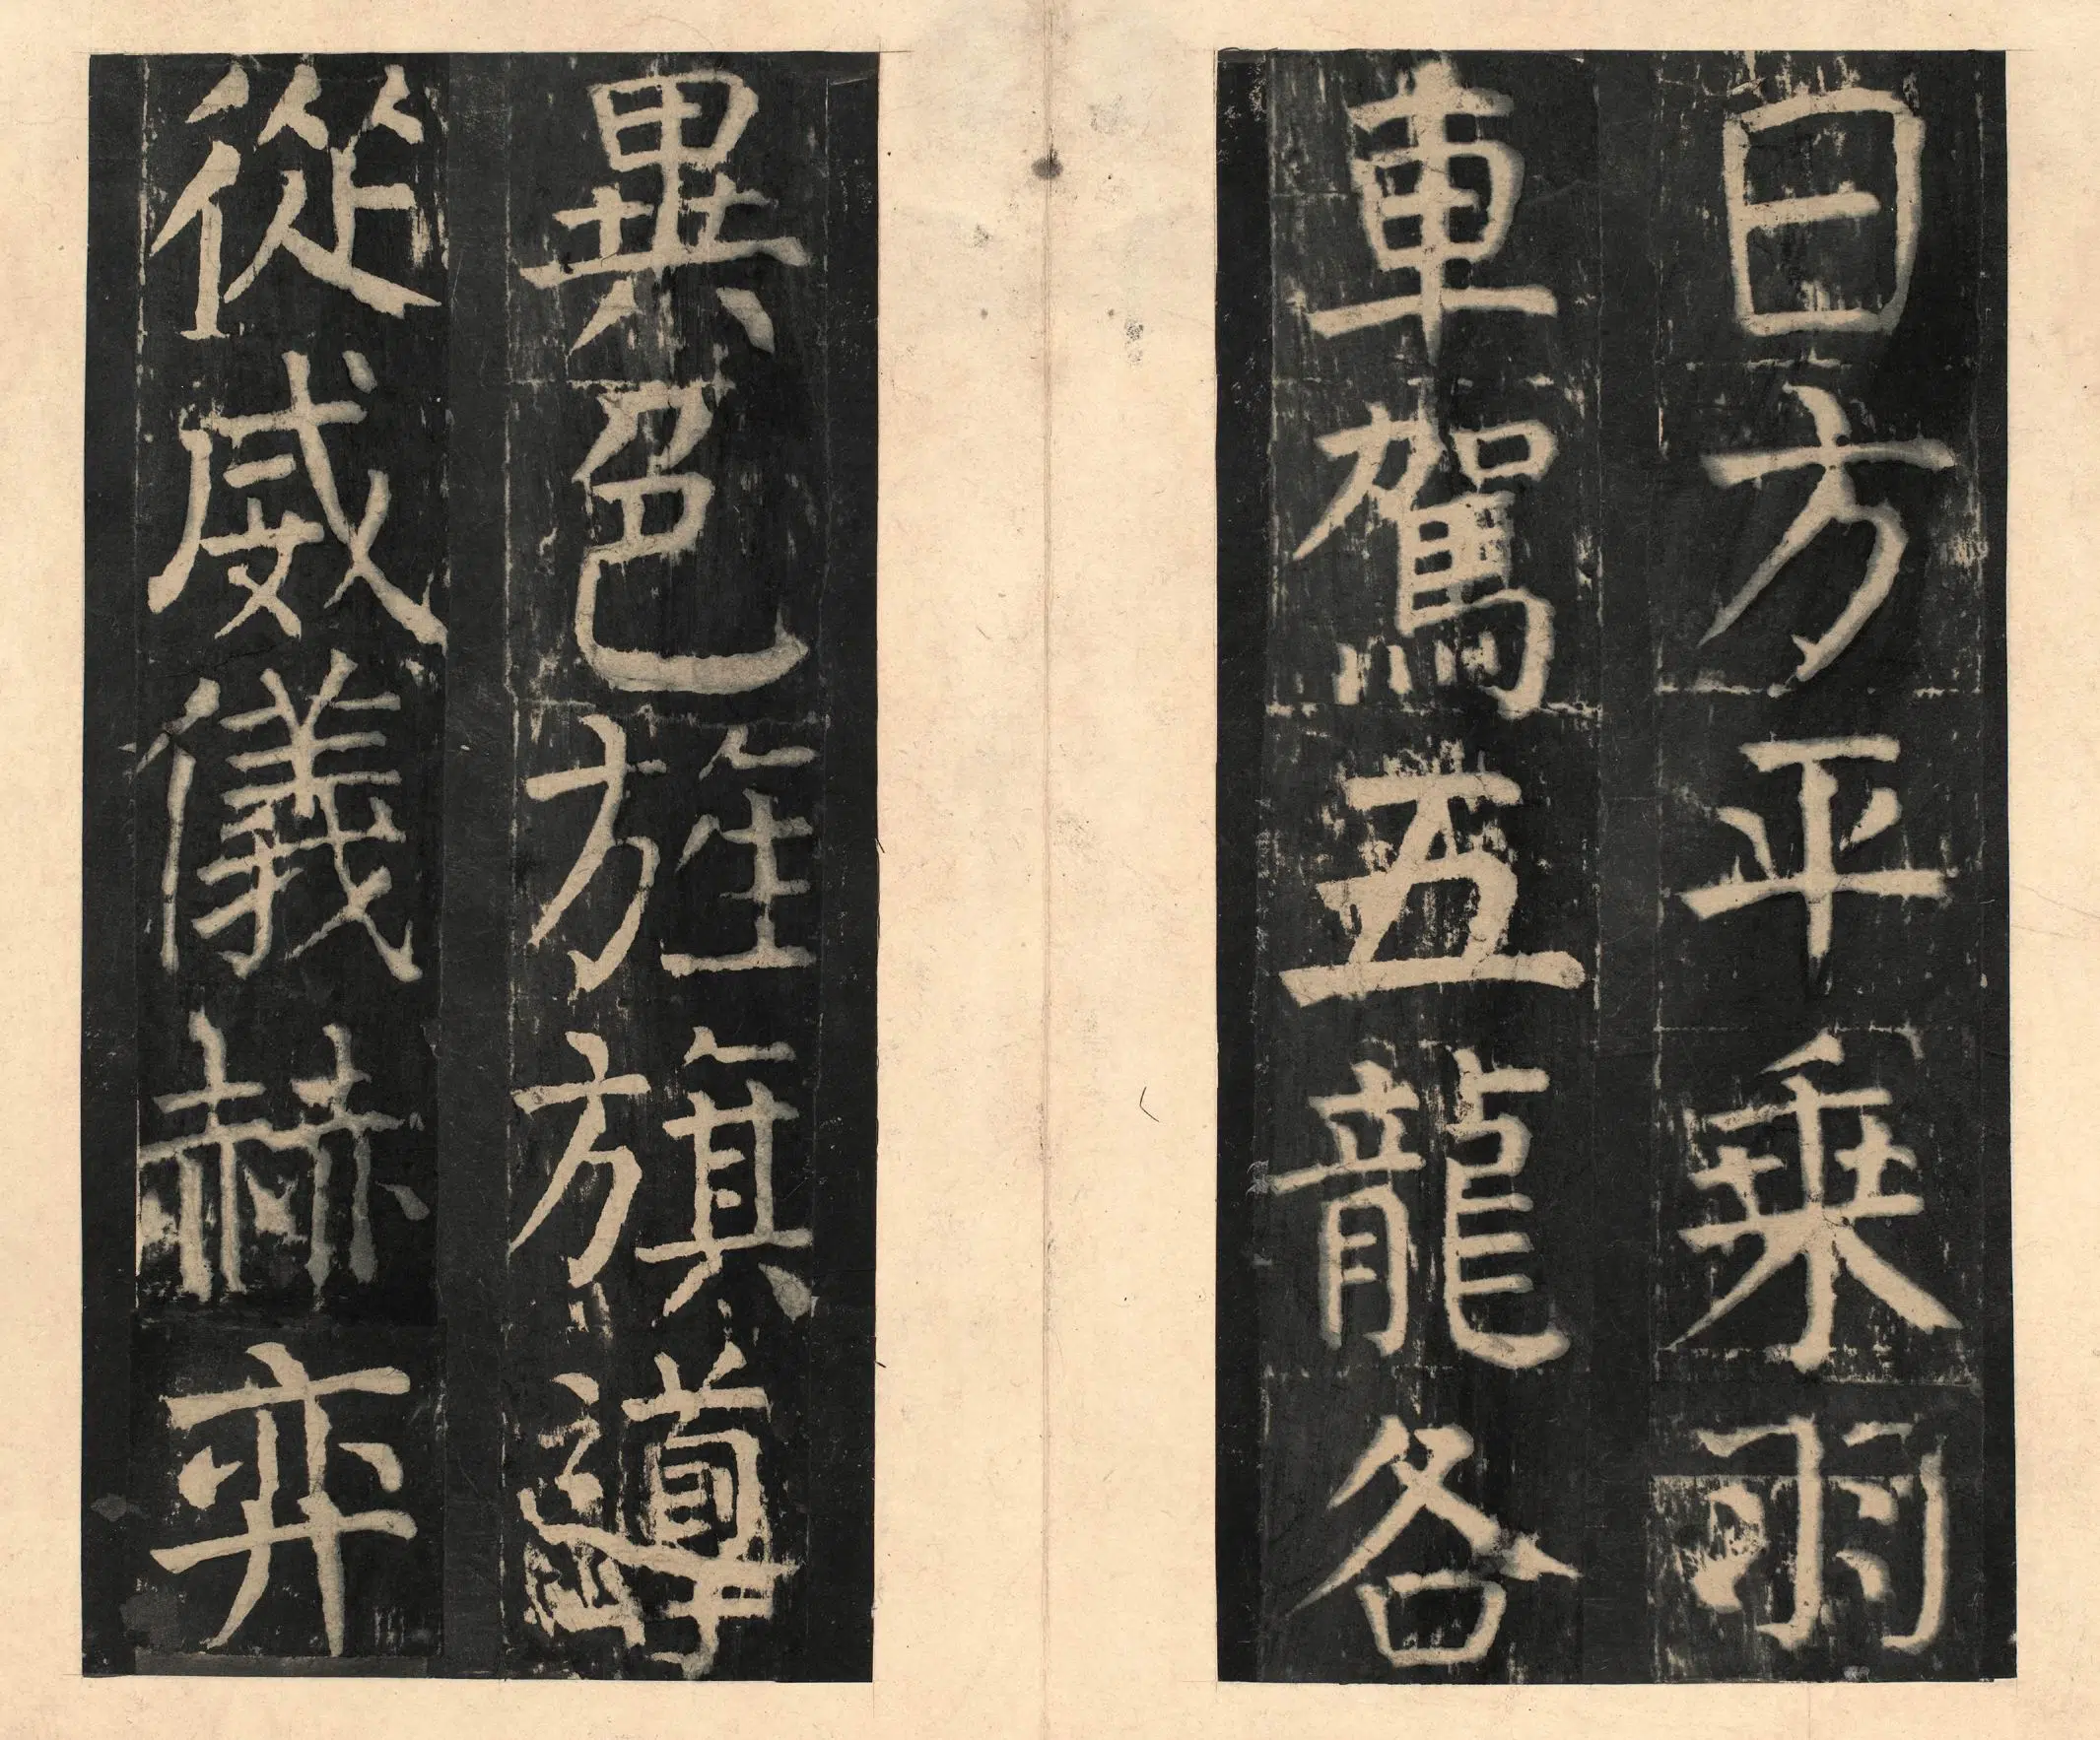 日方平乗雨
車駕五龍各
異色旌旗導
從威儀赫弈